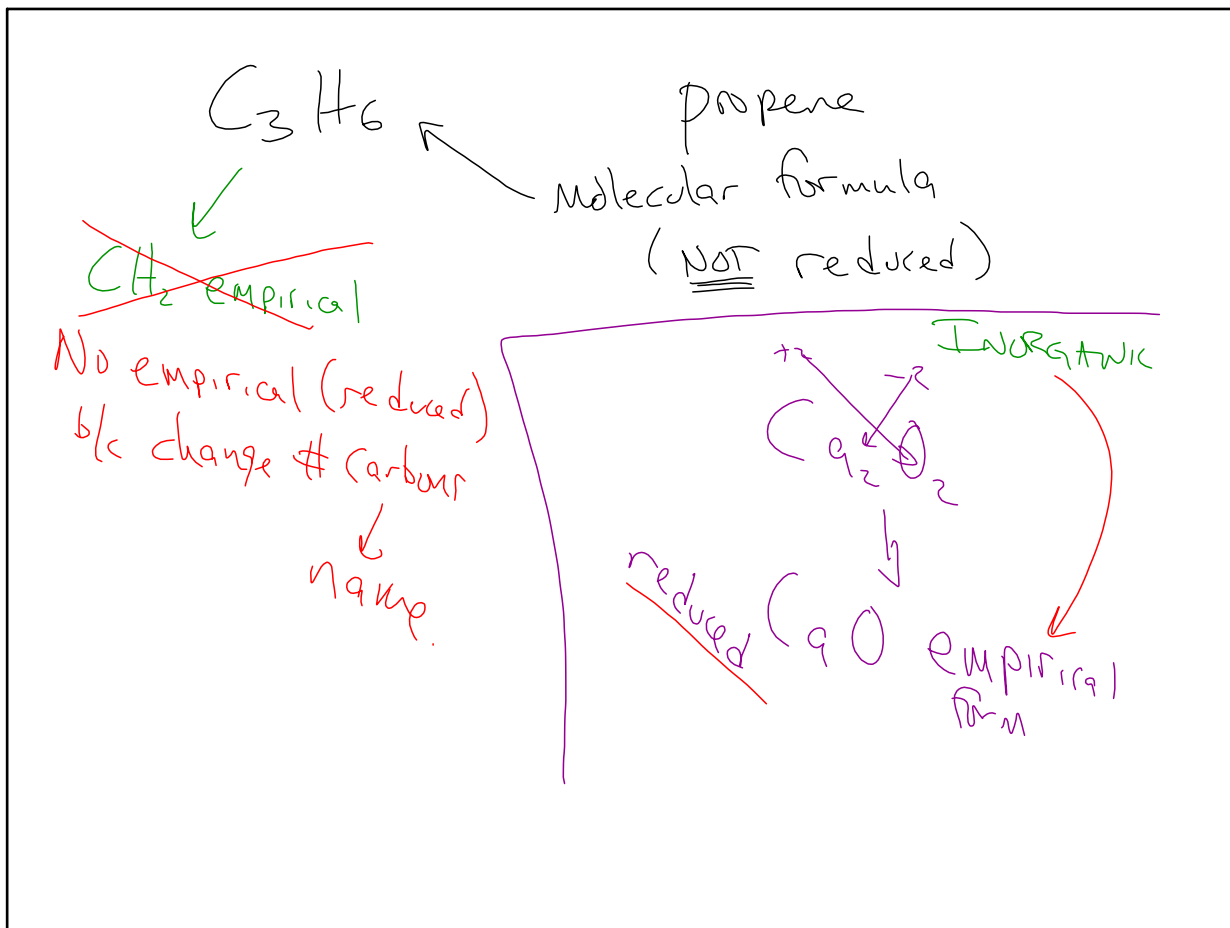 C₃H₆
propene
Molecular formula
(NOT reduced)
CH₂ empirical
No empirical (reduced)
b/c change # carbons
name.
INORGANIC
+2 -2
Ca₂O₂
reduced
CaO empirical
form